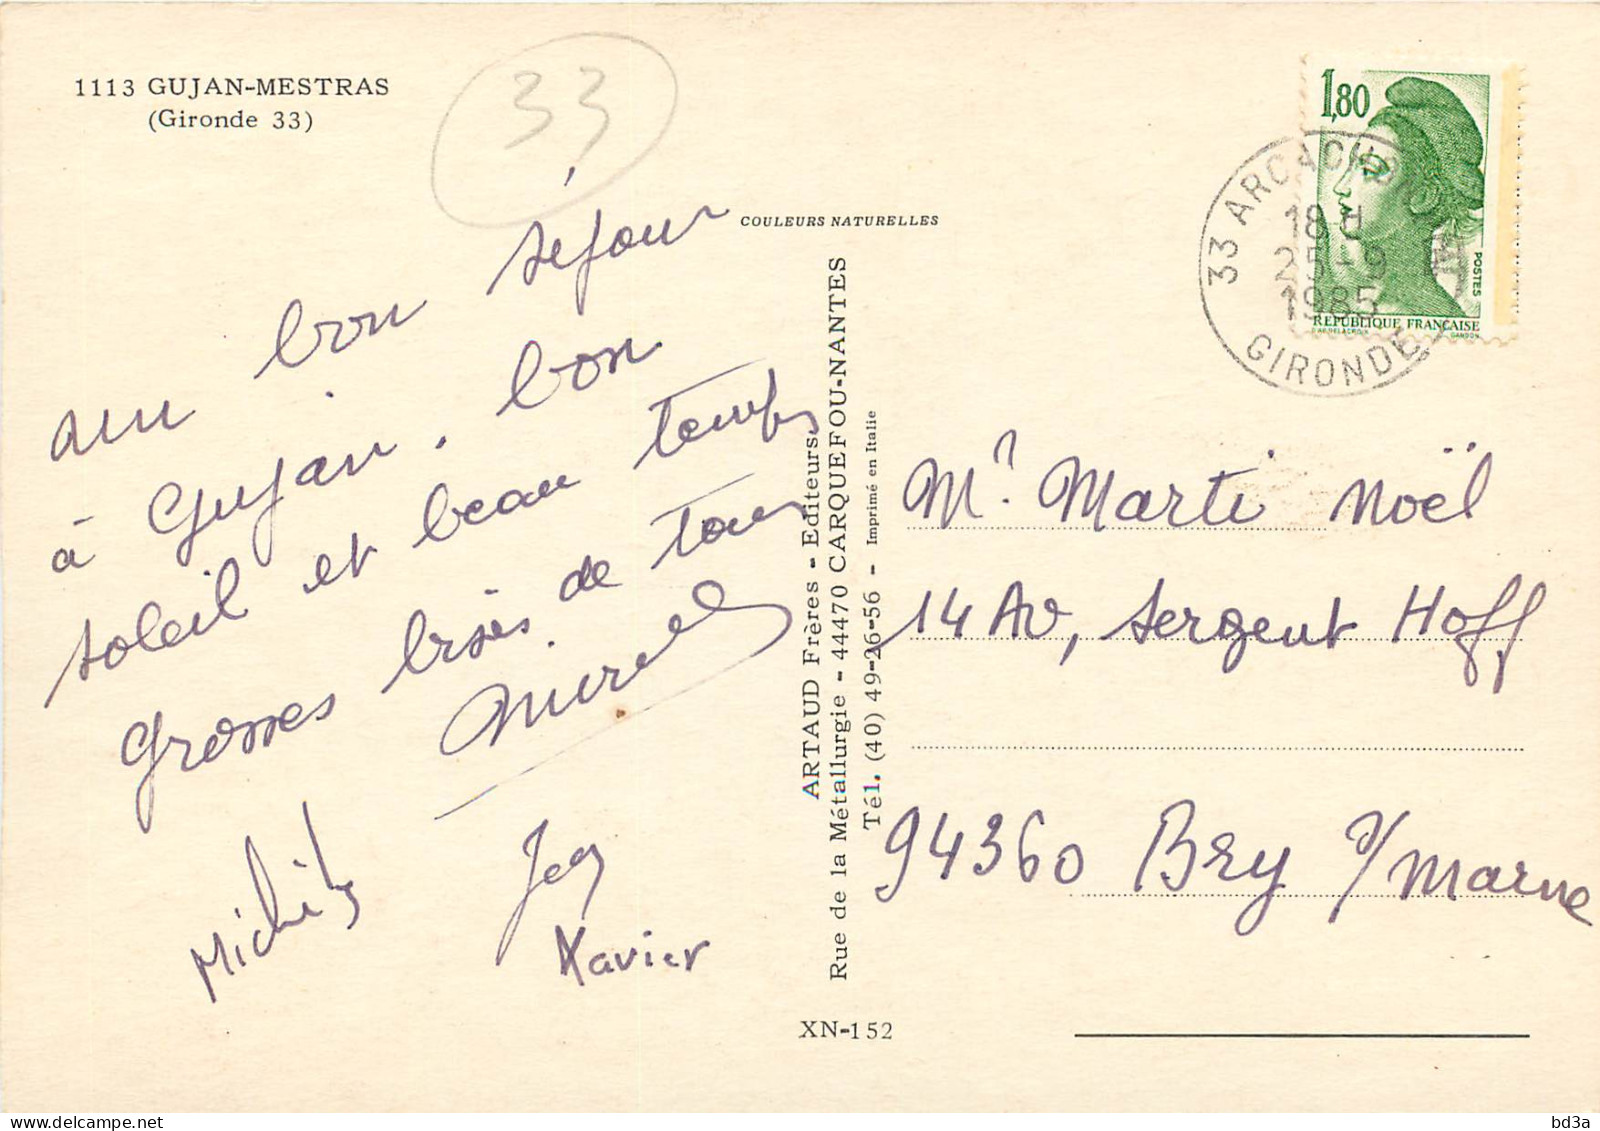 1113 GUJAN-MESTRAS
(Gironde 33)
33
COULEURS NATURELLES
un bon séjour
à Gujan. bon
soleil et beau temps
Grosses bises de tous
Xavier
ARTAUD Frères - Editeurs
Rue de la Métallurgie - 44470 CARQUEFOU-NANTES
Tél. (40) 49-26-56 - Imprimé en Italie
XN-152
1,80
POSTES
REPUBLIQUE FRANÇAISE
GANDON
33 ARCACHON
18 H
25-9
1985
GIRONDE
Mr. Marti Noël
14 Av, Sergent Hoff
94360 Bry s/Marne
delcampe.net
bd3a